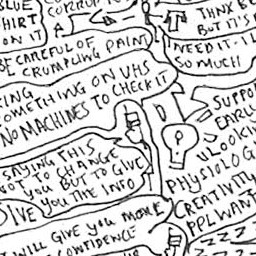 BLUE
SHIRT
ON IT
THNX B
BUT IT'S
I NEED IT - I
SO MUCH
BE CAREFUL OF
CRUMPLING PAIN
ING
SOMETHING ON VHS
NO MACHINES TO CHECK IT
SUPPO
EARLY
LOOKIN
PHYSIOLOG
SAYING THIS
NOT TO CHANGE
YOU BUT TO GIVE
YOU THE INFO
CREATIVITY
PPL WANT
WILL GIVE YOU MORE
CONFIDENCE
ZZZZ